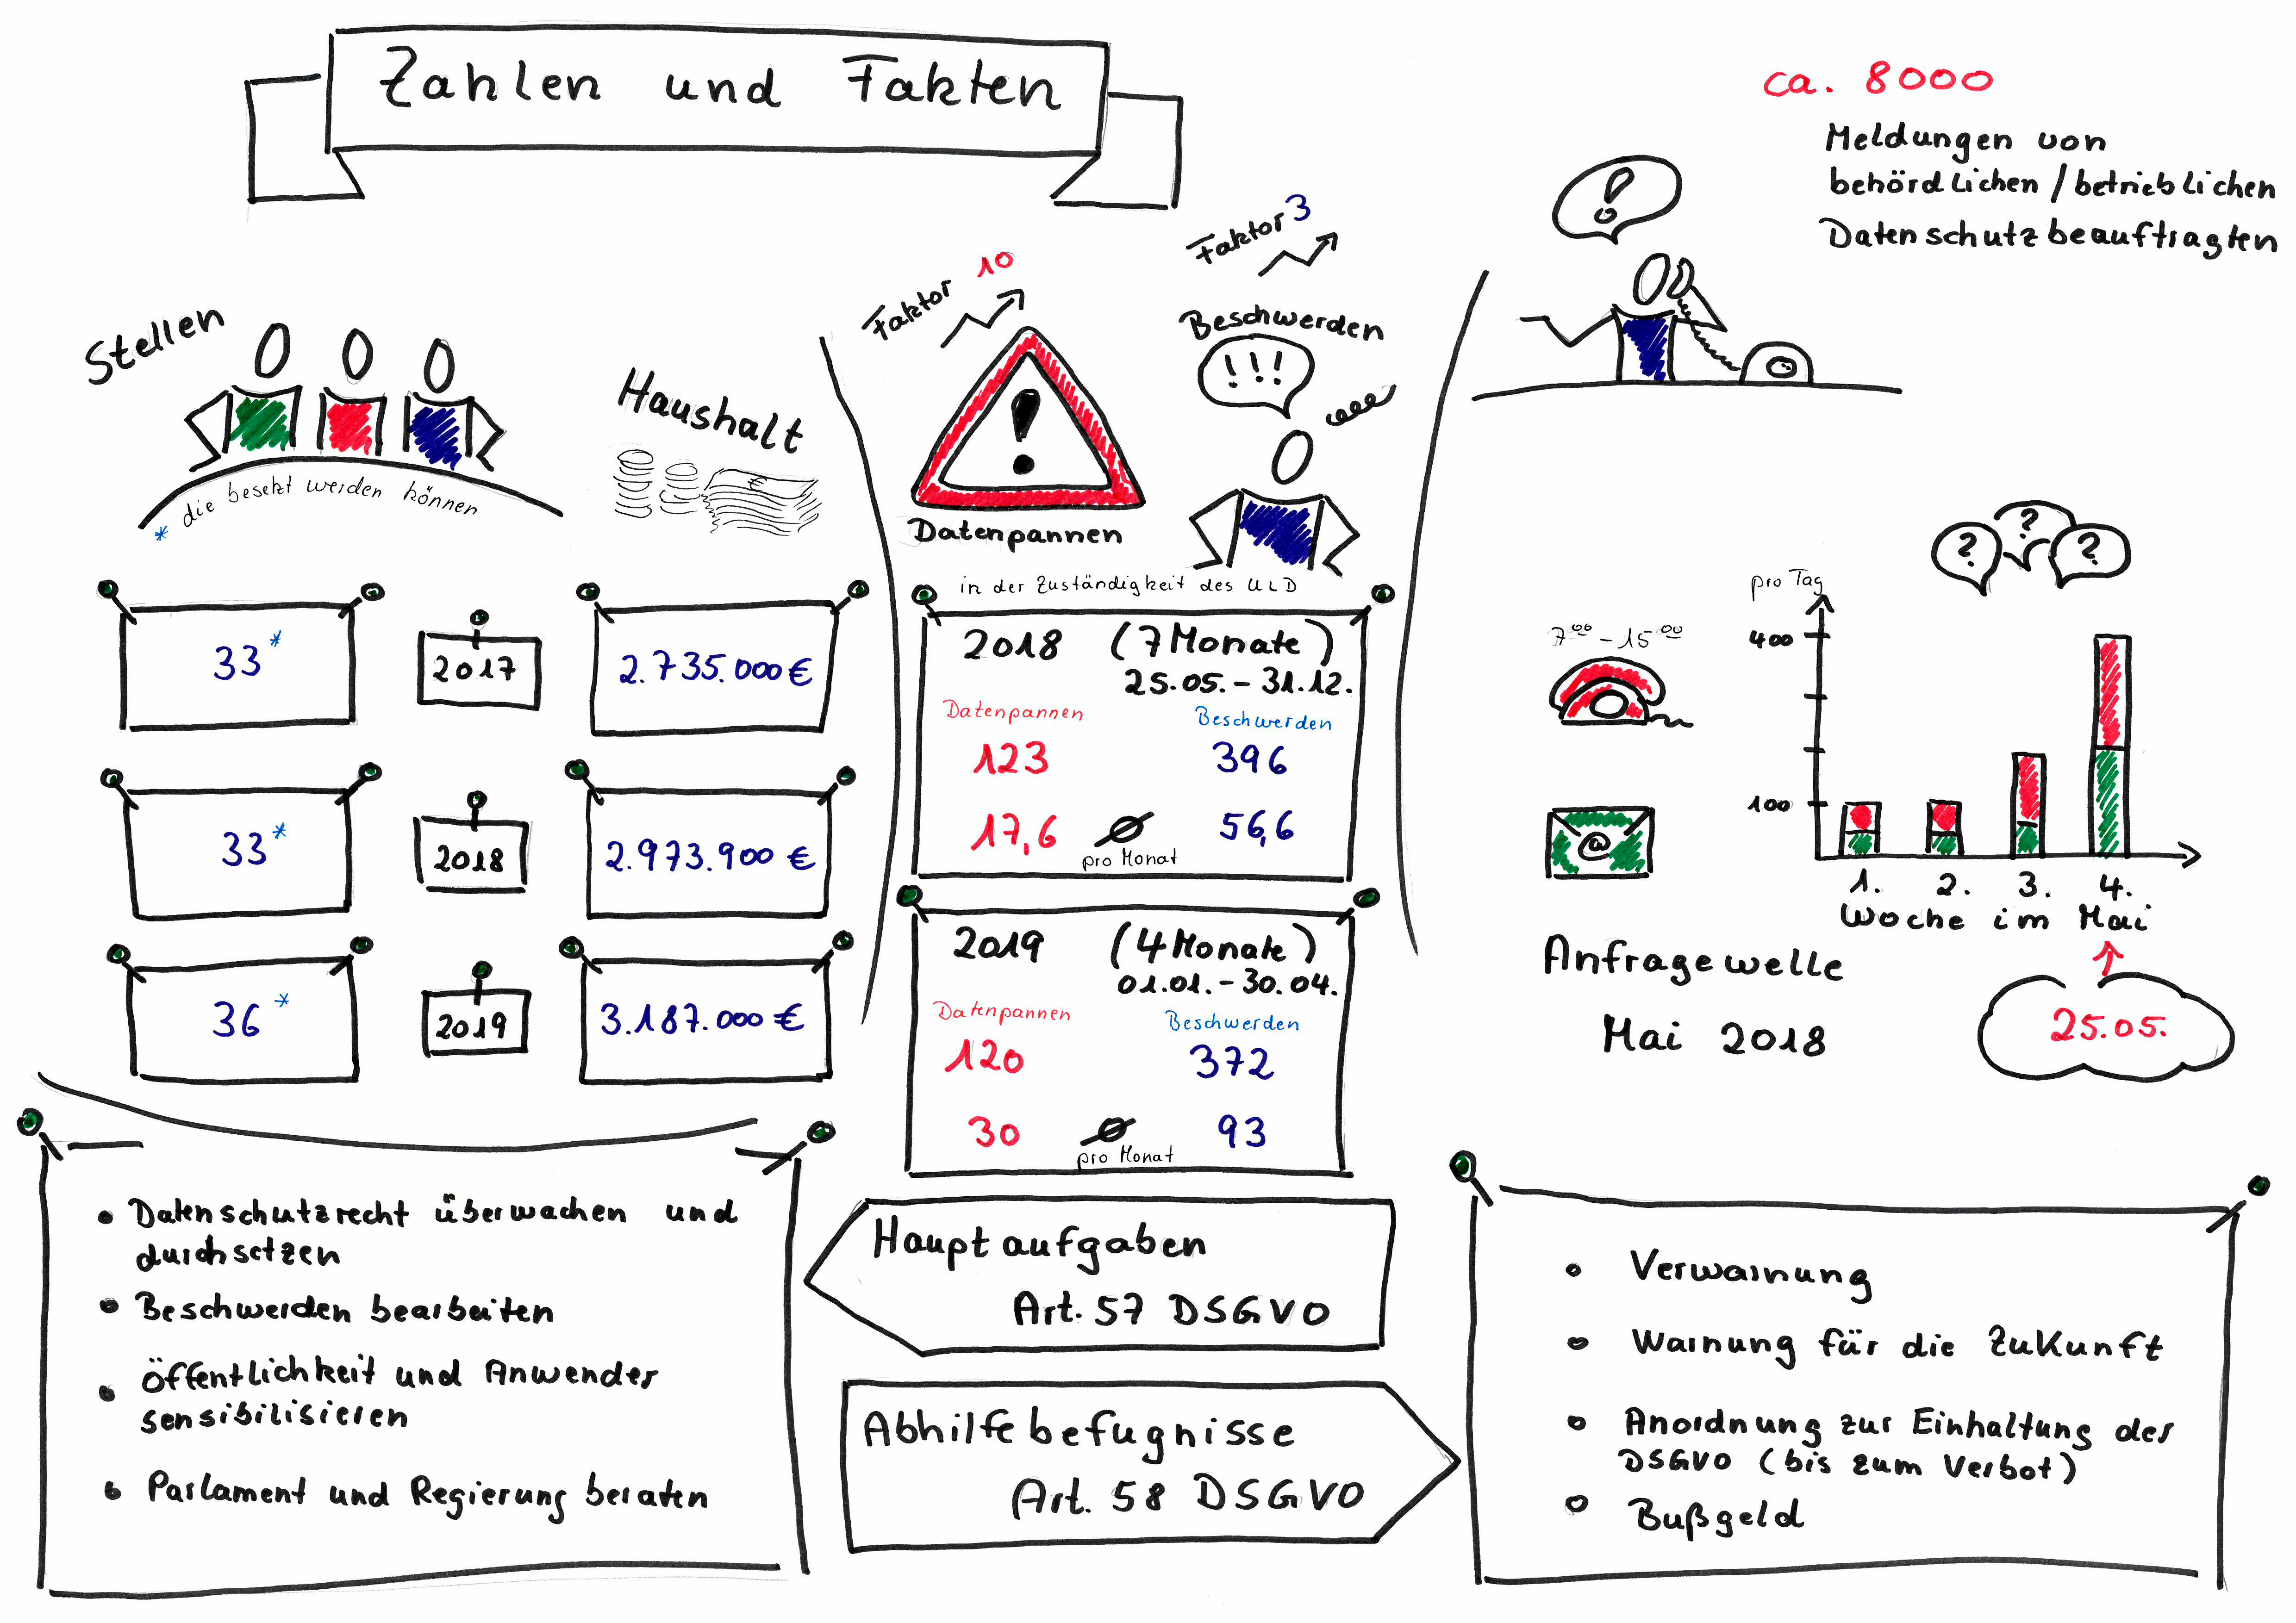 Zahlen und Fakten
ca. 8000
Meldungen von
behördlichen / betrieblichen
Datenschutzbeauftragten
!
Stellen
* die besetzt werden können
Haushalt
€
33*
2017
2.735.000 €
33*
2018
2.973.900 €
36*
2019
3.187.000 €
Faktor 10
Faktor 3
!
Datenpannen
Beschwerden
!!!
in der Zuständigkeit des ULD
2018 (7 Monate)
25.05. - 31.12.
Datenpannen Beschwerden
123 396
17,6 Ø 56,6
pro Monat
2019 (4 Monate)
01.01. - 30.04.
Datenpannen Beschwerden
120 372
30 Ø 93
pro Monat
? ? ?
pro Tag
7⁰⁰ - 15⁰⁰
400
100
@
1. 2. 3. 4.
Woche im Mai
Anfragewelle
Mai 2018
25.05.
• Datenschutzrecht überwachen und
durchsetzen
• Beschwerden bearbeiten
• Öffentlichkeit und Anwender
sensibilisieren
• Parlament und Regierung beraten
Hauptaufgaben
Art. 57 DSGVO
Abhilfebefugnisse
Art. 58 DSGVO
• Verwarnung
• Warnung für die Zukunft
• Anordnung zur Einhaltung der
DSGVO (bis zum Verbot)
• Bußgeld